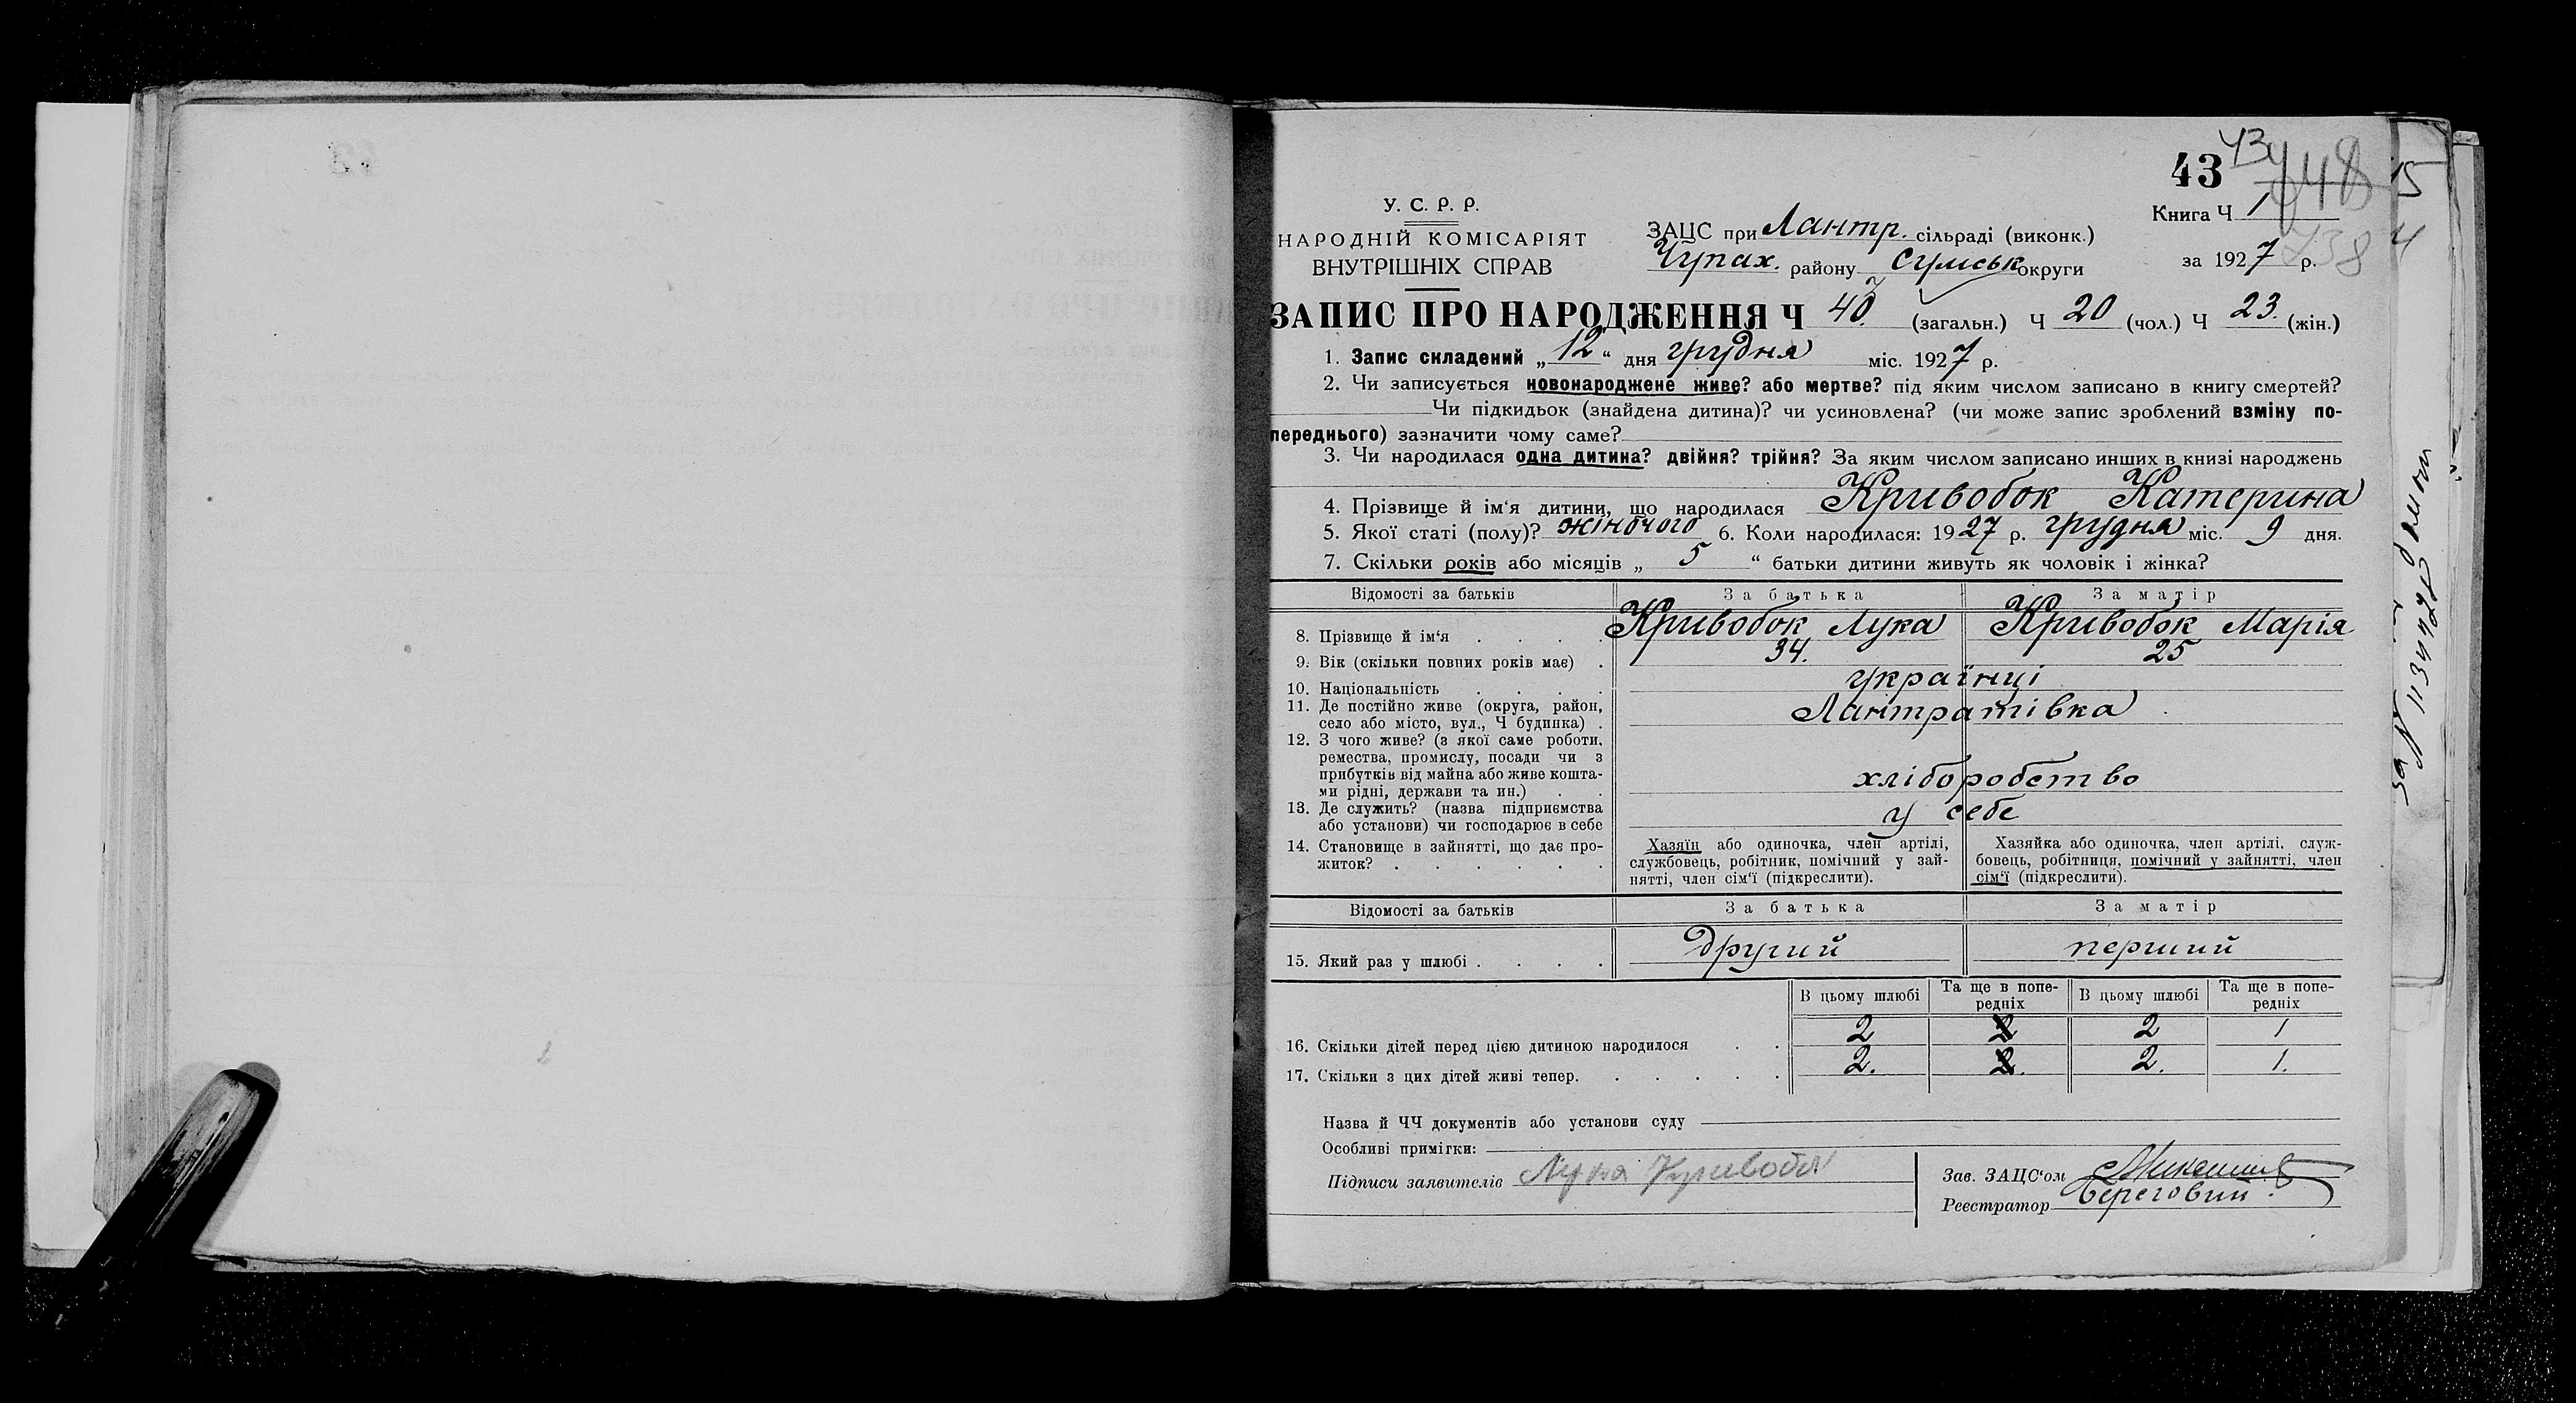 43
43
У. С. Р. Р.
НАРОДНІЙ КОМІСАРІЯТ
ВНУТРІШНІХ СПРАВ
Книга Ч 1
ЗАЦС при Лантр. сільраді (виконк.)
Чупах. району Сумськ округи
за 1927 р.
ЗАПИС ПРО НАРОДЖЕННЯ Ч 40 (загальн.) Ч 20 (чол.) Ч 23. (жін.)
1. Запис складений „ 12 “ дня грудня міс. 1927 р.
2. Чи записується новонароджене живе? або мертве? під яким числом записано в книгу смертей?
Чи підкидьок (знайдена дитина)? чи усиновлена? (чи може запис зроблений взміну по-
переднього) зазначити чому саме?
3. Чи народилася одна дитина? двійня? трійня? За яким числом записано инших в книзі народжень
4. Прізвище й ім‘я дитини, що народилася Кривобок Катерина
5. Якої статі (полу)? жіночого 6. Коли народилася: 1927 р. грудня міс. 9 дня.
7. Скільки років або місяців „ 5 “ батьки дитини живуть як чоловік і жінка?
Відомості за батьків За батька За матір
8. Прізвище й ім‘я Кривобок Лука Кривобок Марія
9. Вік (скільки повних років має) 34. 25
10. Національність українці
11. Де постійно живе (округа, район,
село або місто, вул., Ч будинка) Лантратівка
12. З чого живе? (з якої саме роботи,
ремества, промислу, посади чи з
прибутків від майна або живе кошта-
ми рідні, держави та ин.) хліборобство
13. Де служить? (назва підприємства
або установи) чи господарює в себе у себе
14. Становище в зайнятті, що дає про-
житок?
Хазяїн або одиночка, член артілі,
службовець, робітник, помічний у зай-
нятті, член сім‘ї (підкреслити).
Хазяйка або одиночка, член артілі, служ-
бовець, робітниця, помічний у зайнятті, член
сім‘ї (підкреслити).
Відомості за батьків За батька За матір
15. Який раз у шлюбі другий перший
В цьому шлюбі Та ще в попе-редніх В цьому шлюбі Та ще в попе-редніх
16. Скільки дітей перед цією дитиною народилося 2 2 2 1
17. Скільки з цих дітей живі тепер. 2. 2. 2. 1.
Назва й ЧЧ документів або установи суду
Особливі примігки:
Підписи заявителів Лука Кривобок
Зав. ЗАЦС‘ом
Реєстратор Береговий